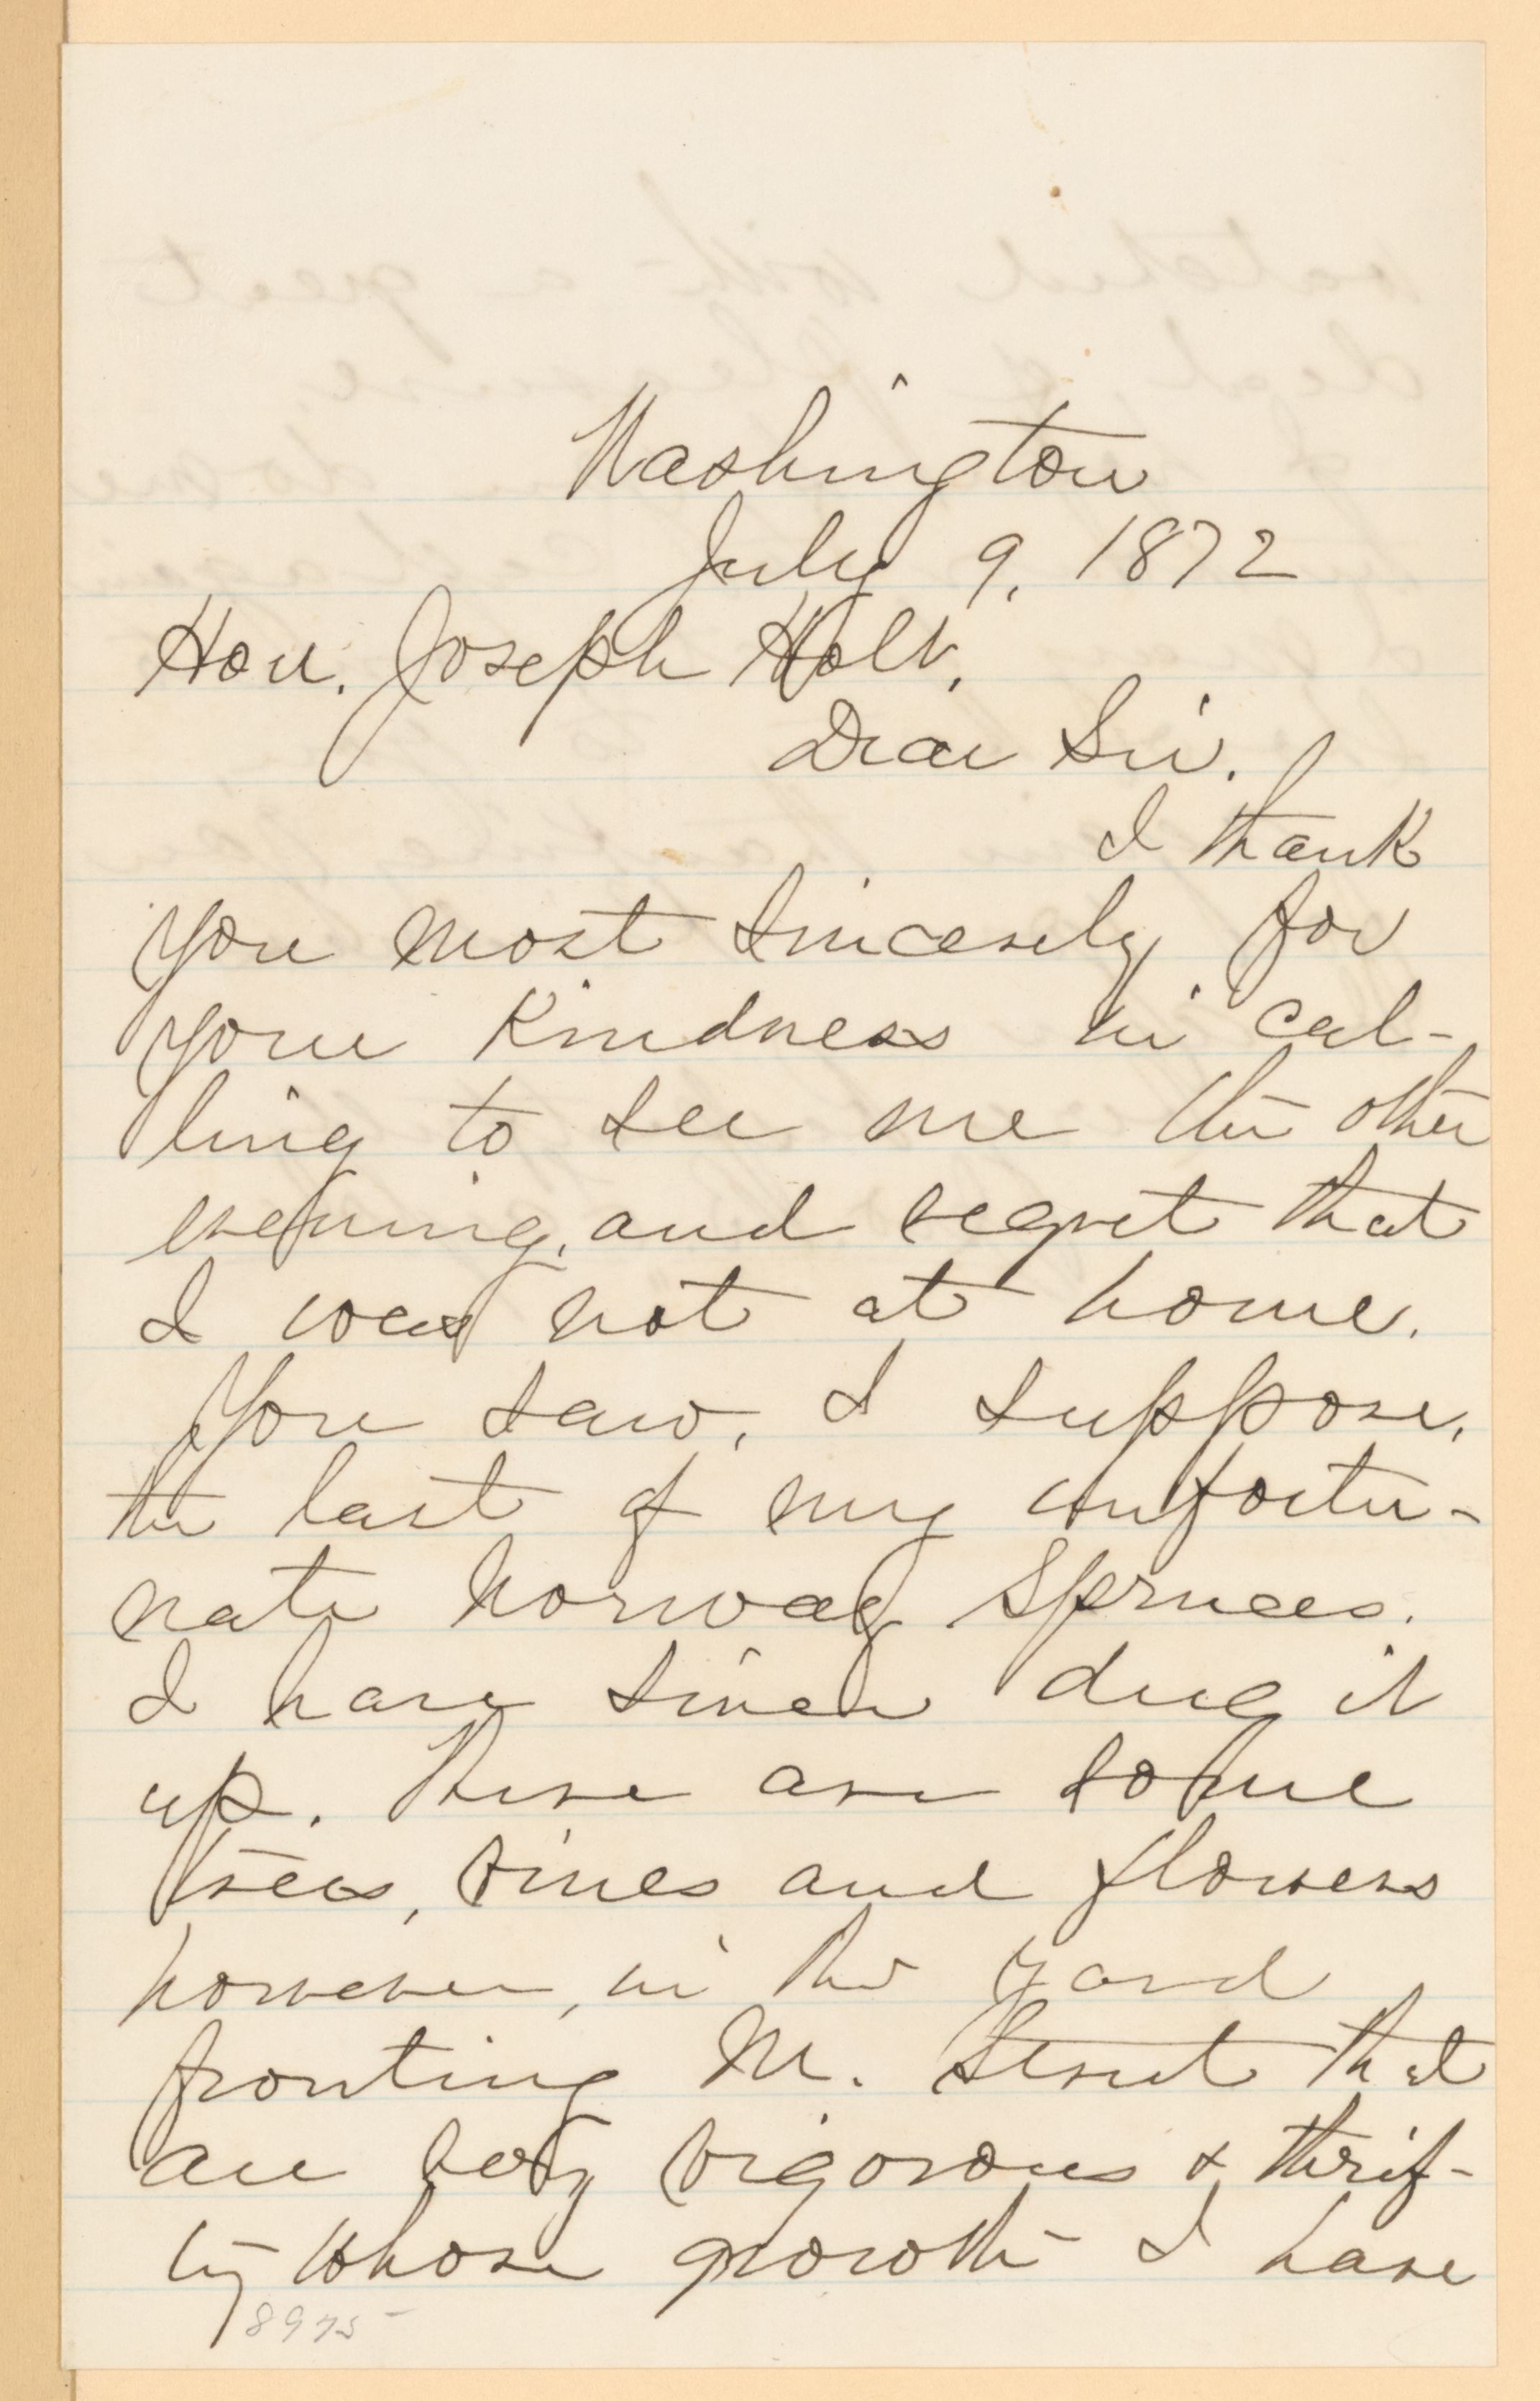 Washington
July 9, 1872
Hon. Joseph Holt,
Dear Sir.
I thank
you most sincerely for
your kindness in cal-
ling to see me the other
evening, and regret that
I was not at home.
You saw, I suppose,
the last of my unfortu-
nate Norway Spruces.
I have since dug it
up. There are some
trees, vines and flowers
however, in the yard
fronting M. Street that
are very vigorous & thrif-
ty whose growth I have
8975